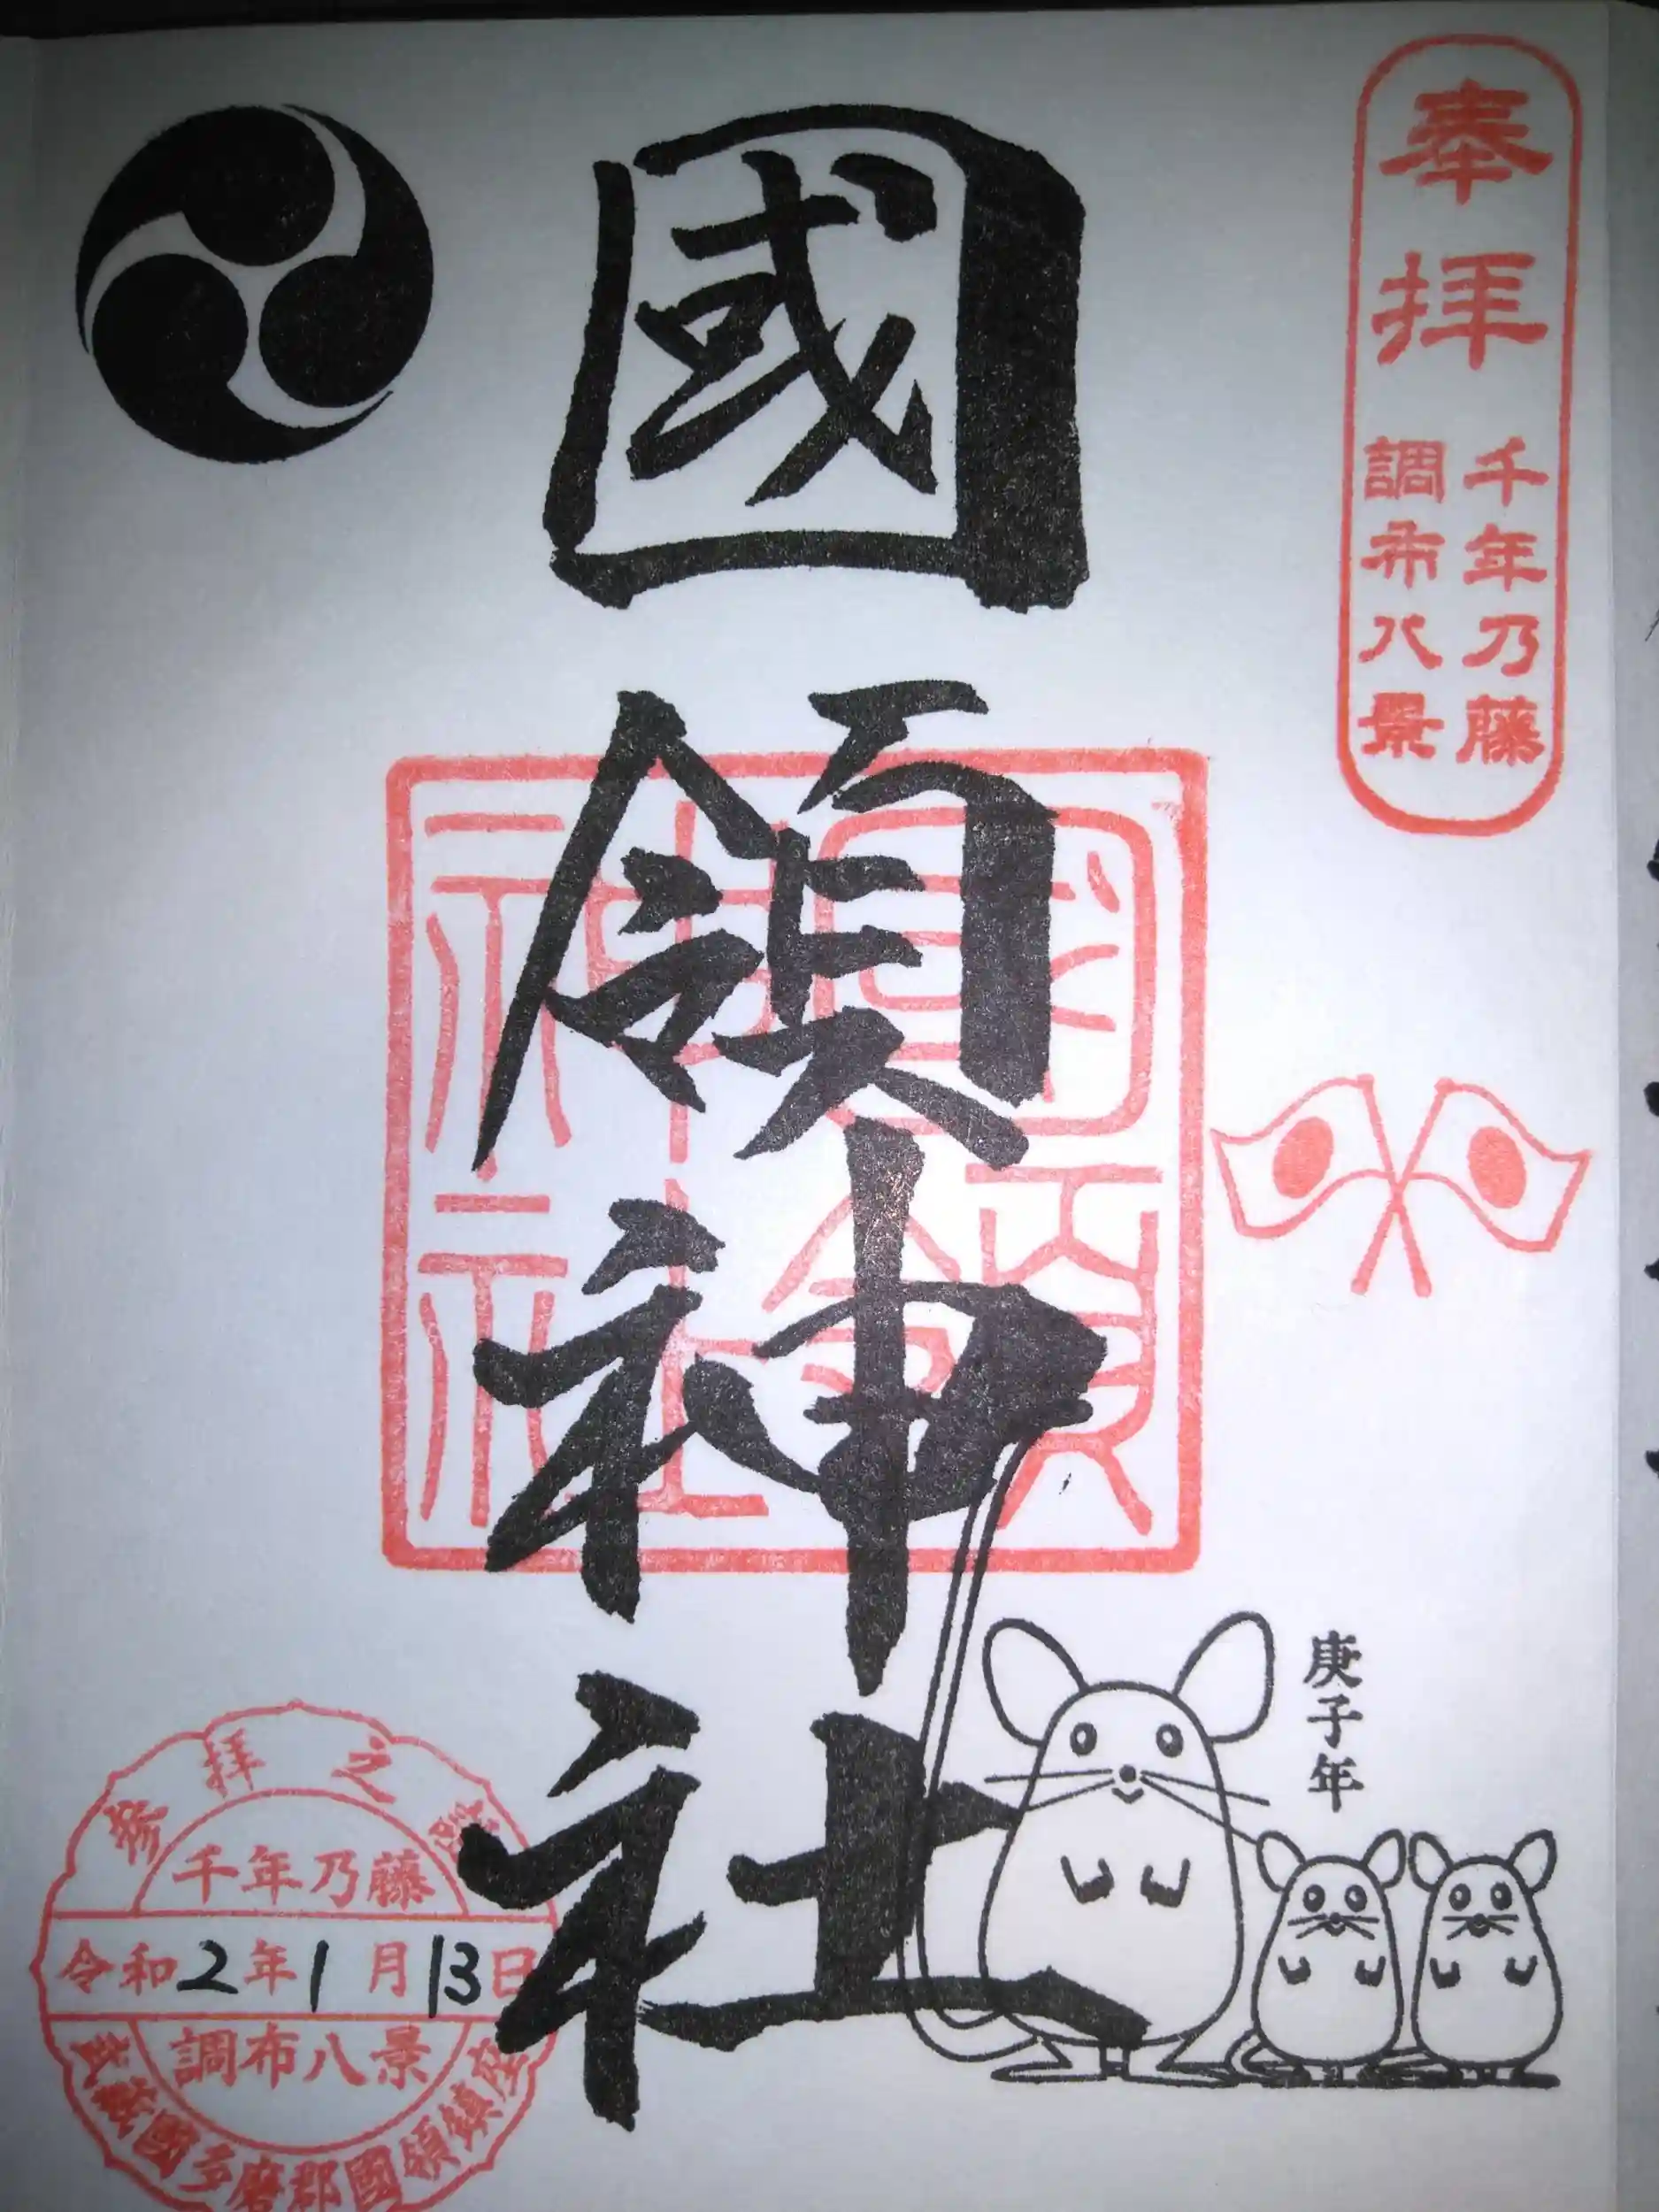 奉拝
千年乃藤
調布八景
國領神社
國領
神社
庚子年
参拝之證
千年乃藤
令和2年1月13日
調布八景
武蔵國多磨郡國領鎮座